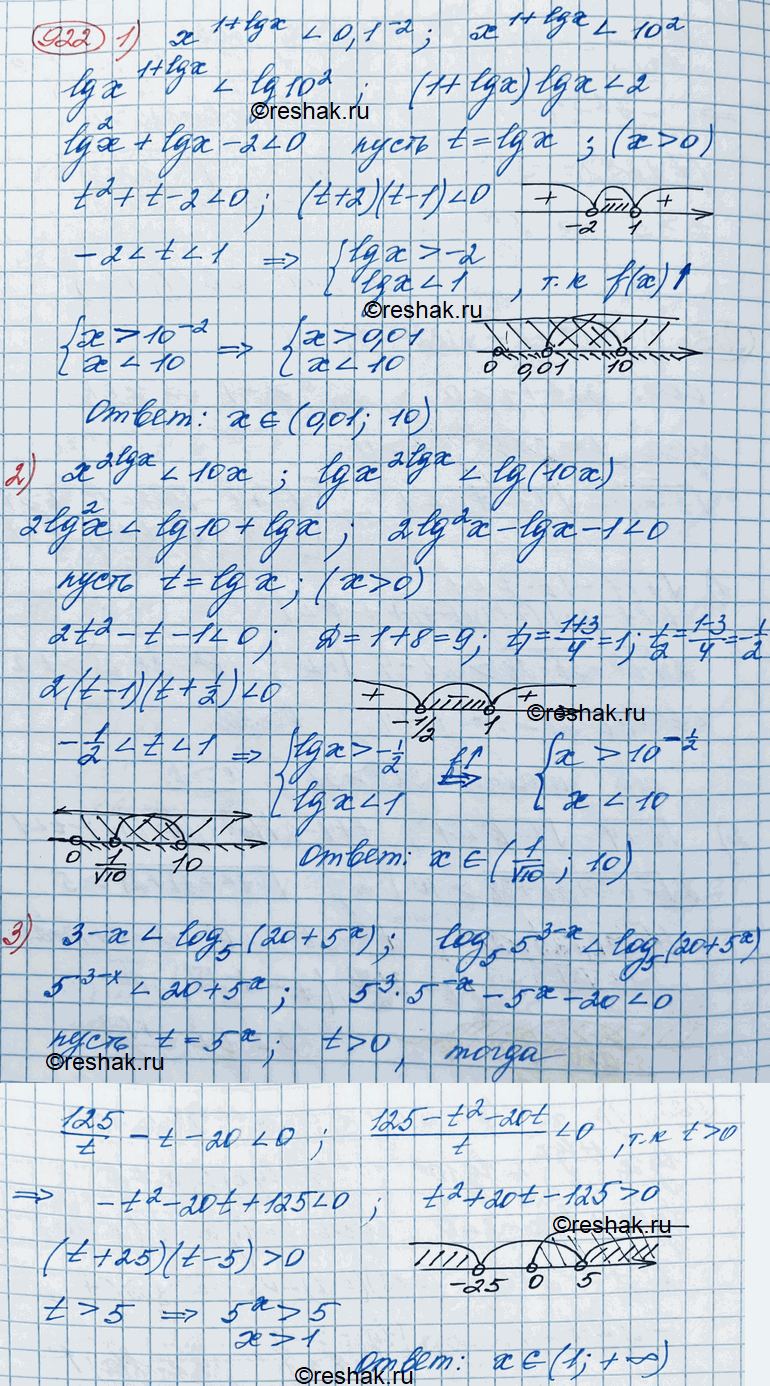 922 1) x^(1+lgx) < 0,1^(-2) ; x^(1+lgx) < 10^2
lgx^(1+lgx) < lg10^2 ; (1+lgx)lgx < 2
©reshak.ru
lg^2x + lgx - 2 < 0 пусть t = lgx ; (x>0)
t^2 + t - 2 < 0 ; (t+2)(t-1) < 0 + - +
-2 1
-2 < t < 1 ⇒ {lgx > -2
lgx < 1 , т.к f(x)↑
©reshak.ru
{x > 10^(-2) ⇒ {x > 0,01
x < 10 x < 10 0 0,01 10
Ответ: x ∈ (0,01; 10)
2) x^(2lgx) < 10x ; lgx^(2lgx) < lg(10x)
2lg^2x < lg10 + lgx ; 2lg^2x - lgx - 1 < 0
пусть t = lgx ; (x>0)
2t^2 - t - 1 < 0 ; D = 1+8 = 9 ; t_1 = (1+3)/4 = 1 ; t_2 = (1-3)/4 = -1/2
2(t-1)(t+1/2) < 0 + - +
-1/2 1
©reshak.ru
-1/2 < t < 1 ⇒ {lgx > -1/2 f↑ ⇒ {x > 10^(-1/2)
lgx < 1 x < 10
0 1/√10 10 Ответ: x ∈ (1/√10 ; 10)
3) 3-x < log_5(20+5^x) ; log_5 5^(3-x) < log_5(20+5^x)
5^(3-x) < 20+5^x ; 5^3·5^(-x) - 5^x - 20 < 0
пусть t = 5^x ; t > 0 , тогда
©reshak.ru
125/t - t - 20 < 0 ; (125-t^2-20t)/t < 0 , т.к t>0
⇒ -t^2-20t+125 < 0 ; t^2+20t-125 > 0
©reshak.ru
(t+25)(t-5) > 0 -25 0 5
t > 5 ⇒ 5^x > 5
x > 1
Ответ: x ∈ (1; +∞)
©reshak.ru